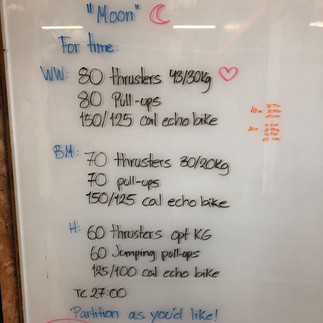 "Moon"
For time:
WW: 80 thrusters 43/30kg
80 Pull-ups
150/125 cal echo bike
BM: 70 thrusters 30/20kg
70 pull-ups
150/125 cal echo bike
H: 60 thrusters opt KG
60 Jumping pull-ups
125/100 cal echo bike
TC 27:00
Partition as you'd like!